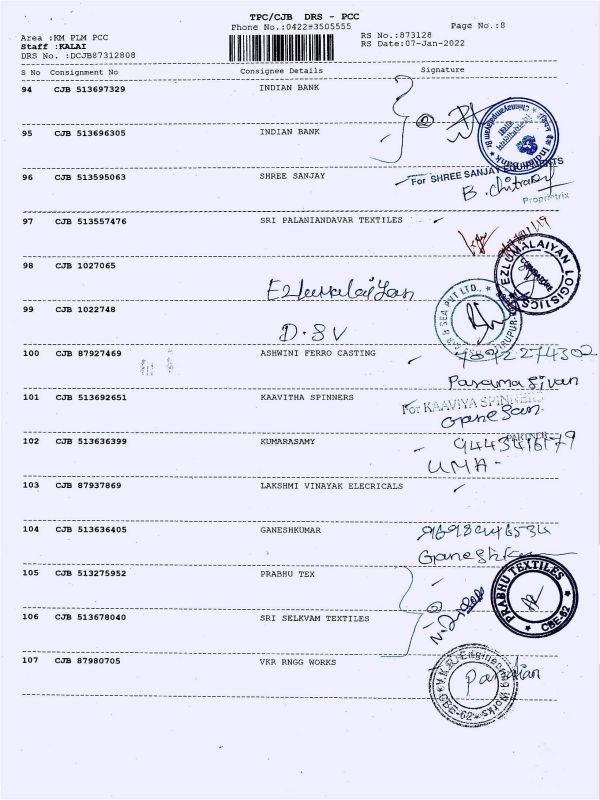 TPC/CJB DRS - PCC
Phone No.:0422±3505555
Page No.:8
Area :KM PLM PCC
RS No.:873128
Staff :KALAI
RS Date:07-Jan-2022
DRS No. :DCJB87312808
S No Consignment No Consignee Details Signature
94 CJB 513697329 INDIAN BANK
95 CJB 513696305 INDIAN BANK
96 CJB 513595063 SHREE SANJAY
For SHREE SANJAY
B. Chitra
Proprietrix
97 CJB 513557476 SRI PALANIANDAVAR TEXTILES
98 CJB 1027065
Ezhumalaiyan
EZLUMALAIYAN LOGISTICS
COIMBATORE
99 CJB 1022748
D.SV
& SEA PVT LTD., TIRUPUR
100 CJB 87927469 ASHWINI FERRO CASTING
Parama Sivan
101 CJB 513692651 KAAVITHA SPINNERS
For KAAVIYA SPINNERS
Ganesan
PARTNER
102 CJB 513636399 KUMARASAMY
UMA -
103 CJB 87937869 LAKSHMI VINAYAK ELECRICALS
104 CJB 513636405 GANESHKUMAR
105 CJB 513275952 PRABHU TEX
PRABHU TEXTILES
CBE-62
106 CJB 513678040 SRI SELKVAM TEXTILES
107 CJB 87980705 VKR RNGG WORKS
V.K.R. Engineering Works
CBE-62